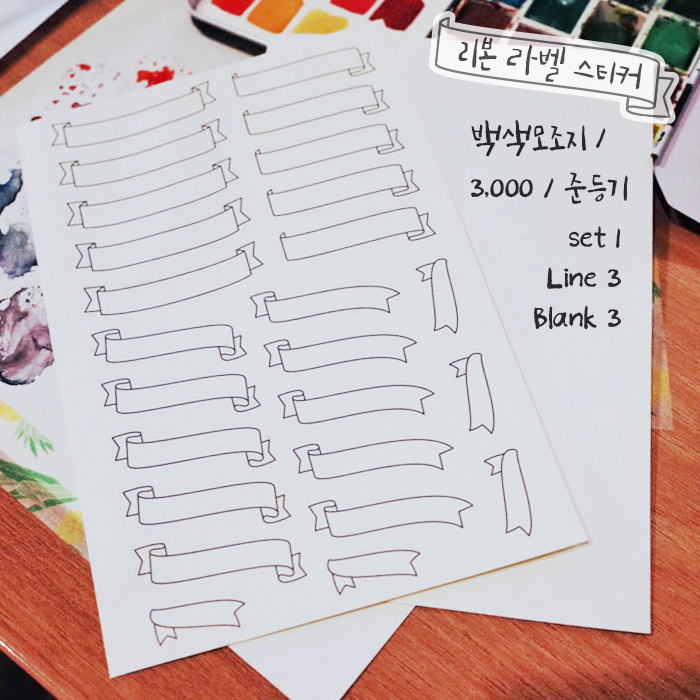 리본 라벨 스티커
백색모조지 /
3,000 / 준등기
set 1
Line 3
Blank 3